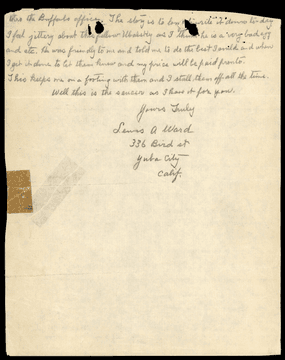 this the Buffalo office. The story is to long to write it down to-day
I feel jittery about this fellow as I think he is a very bad egg
and etc. He was friendly to me and told me to do the best I could and when
I got it done to let them know and my price will be paid pronto.
This keeps me on a footing with them and I stall them off all the time.
Well this is the as I have it for you.
Yours Truly
Lewis A Ward
336 Bird st
Yuba City
Calif.